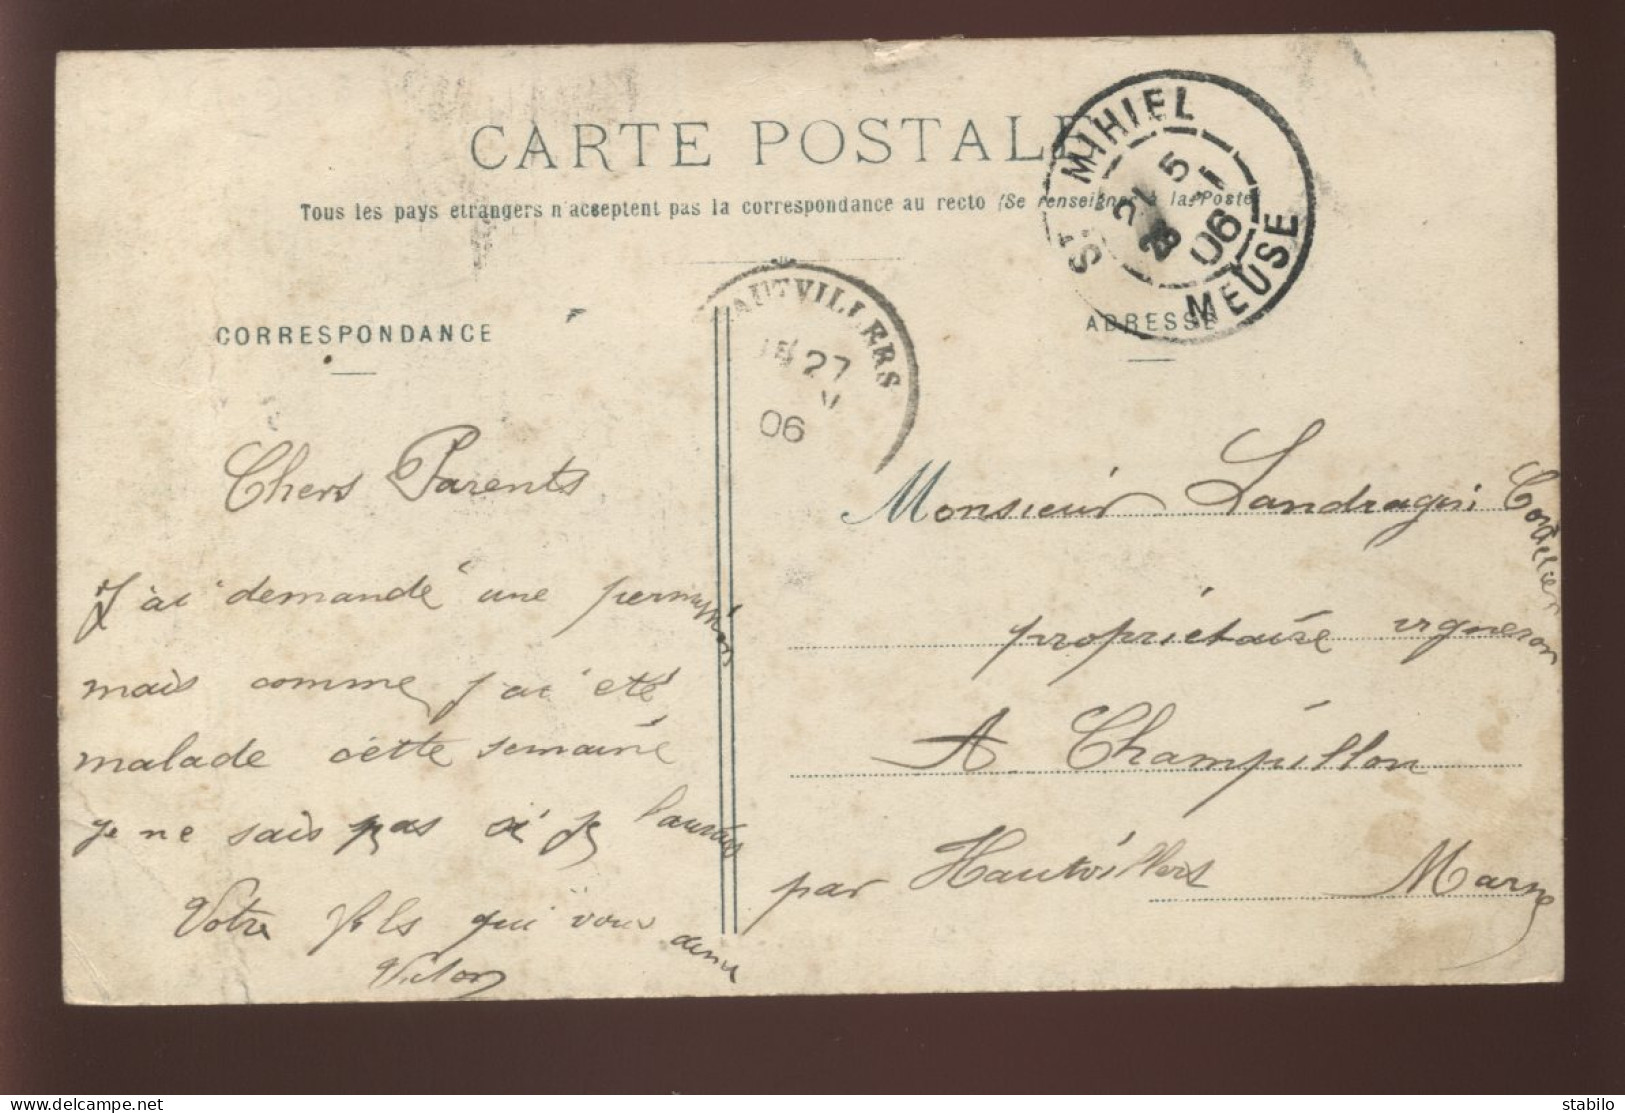 CARTE POSTALE
Tous les pays etrangers n'acceptent pas la correspondance au recto (Se renseigner à la Poste
ST MIHIEL
5
26 06
MEUSE
HAUTVILLERS
27
06
CORRESPONDANCE
ADRESSE
Chers Parents
J'ai demandé une permission
mais comme j'ai été
malade cette semaine
je ne sais pas si je l'aurais
Votre fils qui vous aime
Victor
Monsieur Landragin Cordelier
propriétaire vigneron
A Champillon
par Hautvillers Marne
stabilo
Delcampe.net